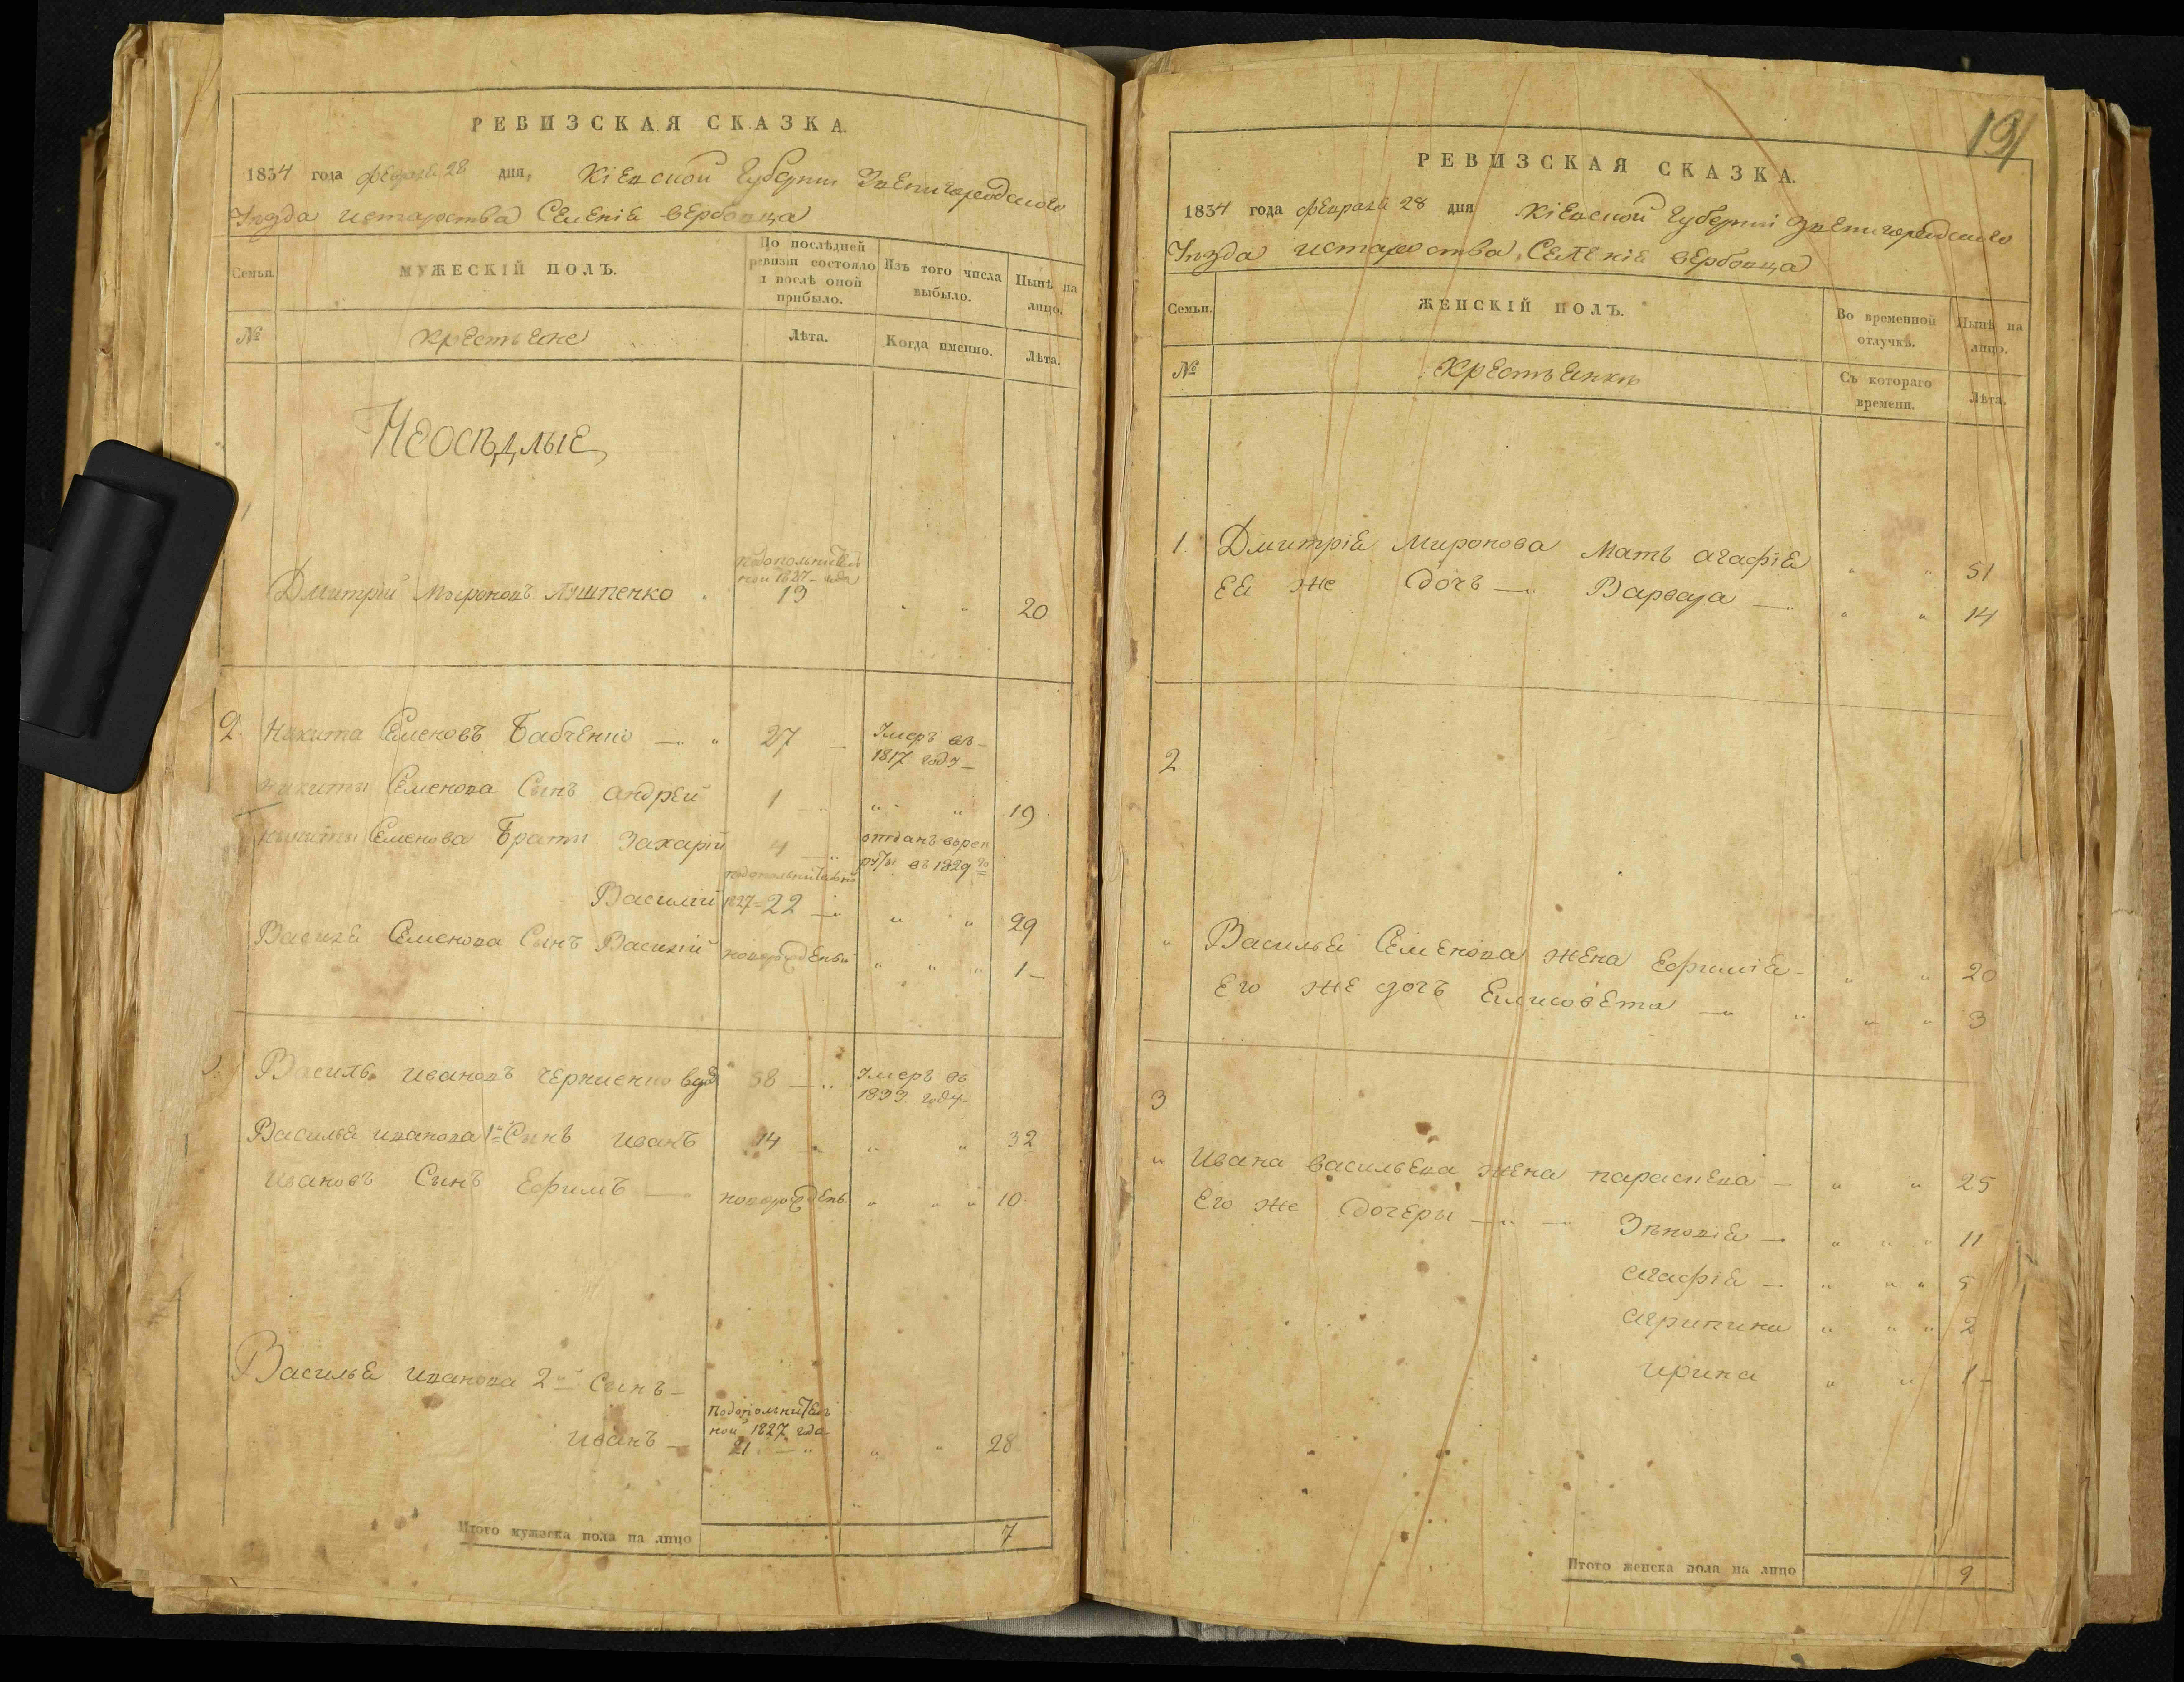 РЕВИЗСКАЯ СКАЗКА.
1834 года февраля 28 дня, Кіевской Губерніи Звенигородского
Уезда истароства Селеніе вербовца
Семьи.
МУЖЕСКІЙ ПОЛЪ.
По послѣдней ревизіи состояло и послѣ оной прибыло.
Изъ того числа выбыло.
Нынѣ на лицо.
№
крестьяне
Лѣта.
Когда именно.
Лѣта.
Неосѣдлые
1
подополнител
ной 1827 года
Дмитрій Мироновъ 13 " " 20
2. Никита Семеновъ Бабченко — " 27 — Умеръ въ
1817 году —
никиты Семенова Сынъ андрей 1 " " 19
никиты Семенова Браты Захарій 4 отданъ врек
руты въ 1829 го
подополнителной
Василій 1827 = 22 " " 29
Василя Семенова Сынъ Василій новорожденъ " " " 1 —
Василь Ивановъ черненко 58 — " Умеръ въ
1833 году
Василья иванова 1й Сынъ иванъ 14 " " 32
ивановъ Сынъ Ефимъ — " новорожденъ " " " 10
Василья иванова 2й Сынъ —
подополнител
ной 1827 года
иванъ — 21 — " " " 28
Итого мужеска пола на лицо 7
191
РЕВИЗСКАЯ СКАЗКА.
1834 года февраля 28 дня Кіевской Губерніи Звенигородского
Уезда истароства, Селеніе вербовца
Семьи.
ЖЕНСКІЙ ПОЛЪ.
Во временной отлучкѣ.
Нынѣ на лицо.
№
крестьянки
Съ котораго времени.
Лѣта.
1. Дмитрія Миронова Мать агафія " " 51
Ея же дочъ — Варвара — " " 14
2
" Василья Семенова жена Ефимія — " " 20
Его же дочъ Елисовета — " " " 3
3
" Ивана васильева жена параскева — " " 25
Его же дочеры — " — " Зѣновія — " " " 11
агафія — " " " 5
агрипина " " " 2
ирина " " 1 —
Итого женска пола на лицо 9